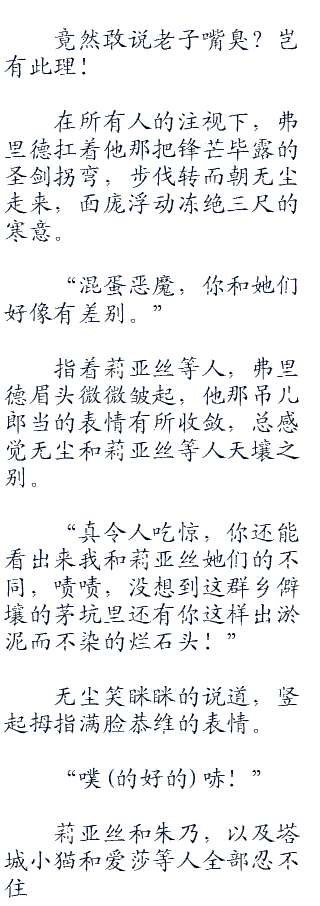 竟然敢说老子嘴臭？岂
有此理！
在所有人的注视下，弗
里德扛着他那把锋芒毕露的
圣剑拐弯，步伐转而朝无尘
走来，面庞浮动冻绝三尺的
寒意。
“混蛋恶魔，你和她们
好像有差别。”
指着莉亚丝等人，弗里
德眉头微微皱起，他那吊儿
郎当的表情有所收敛，总感
觉无尘和莉亚丝等人天壤之
别。
“真令人吃惊，你还能
看出来我和莉亚丝她们的不
同，啧啧，没想到这群乡僻
壤的茅坑里还有你这样出淤
泥而不染的烂石头！”
无尘笑眯眯的说道，竖
起拇指满脸恭维的表情。
“噗(的好的)哧！”
莉亚丝和朱乃，以及塔
城小猫和爱莎等人全部忍不
住